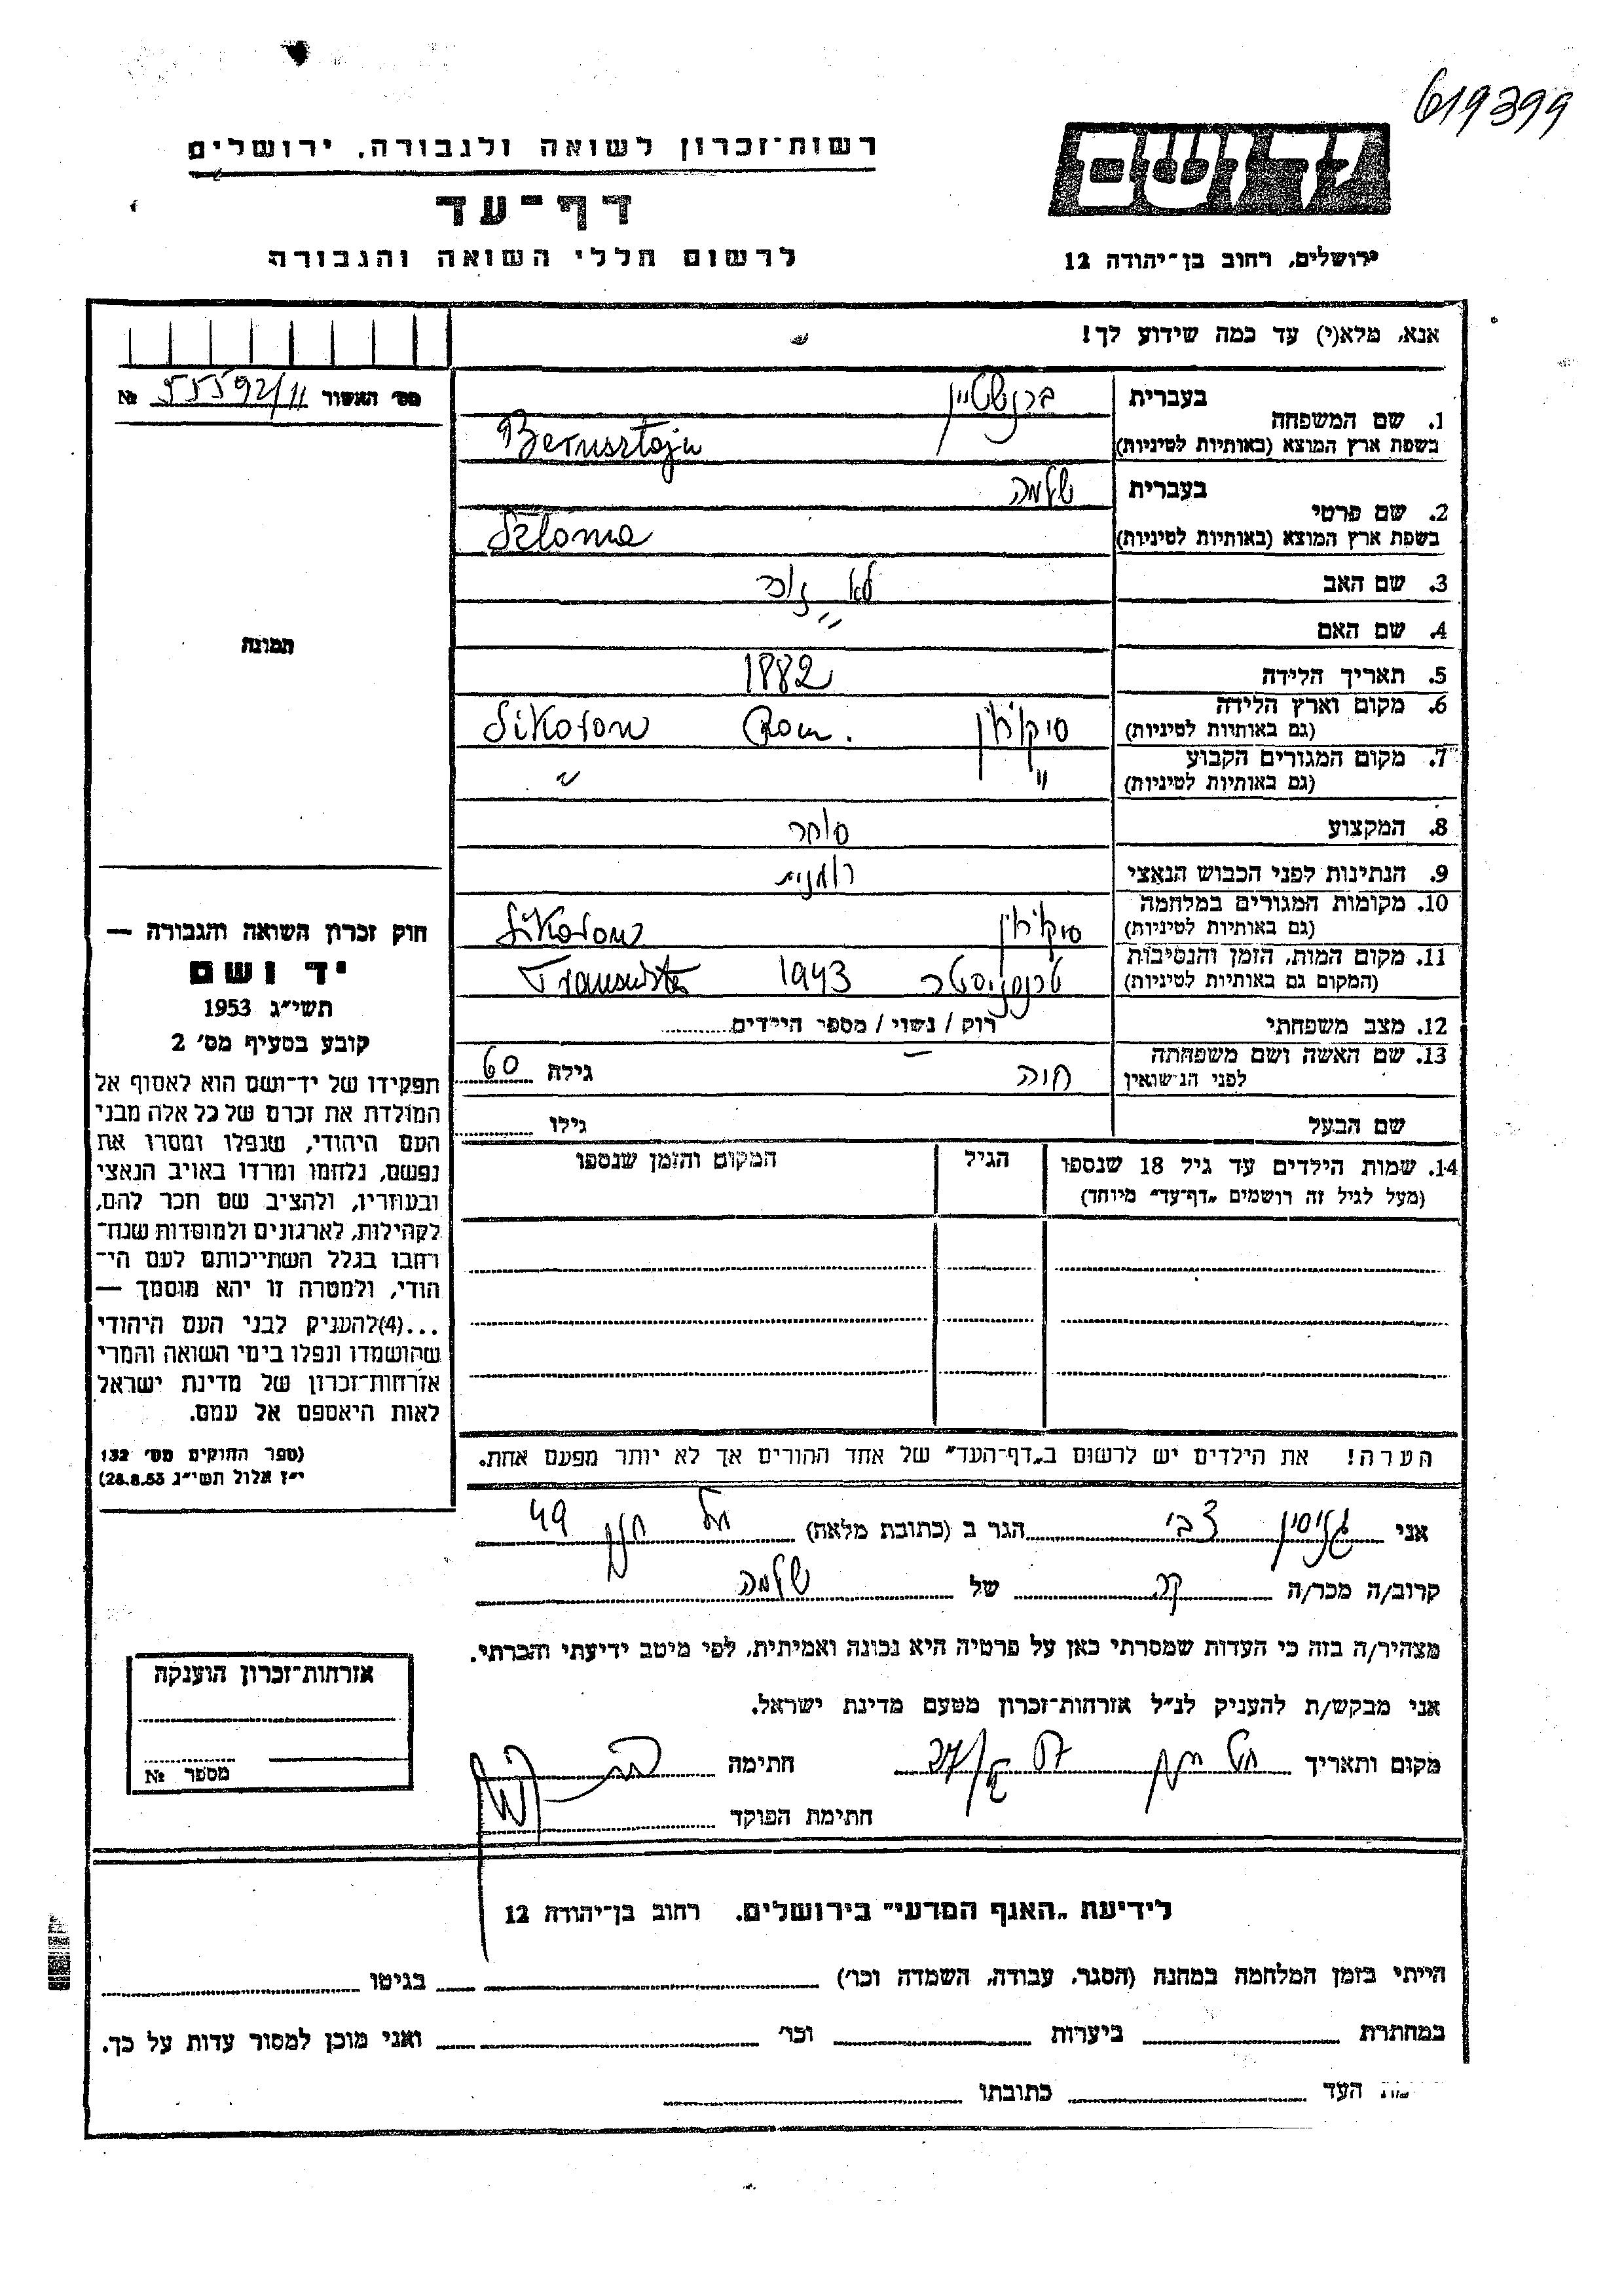 619399
רשות־זכרון לשואה ולגבורה, ירושלים
יד ושם
דף־עד
לרשום חללי השואה והגבורה
ירושלים, רחוב בן־יהודה 12
אנא, מלא(י) עד כמה שידוע לך!
מס' האשור 55592/11 №
בעברית ברנשטיין
1. שם המשפחה
בשפת ארץ המוצא (באותיות לטיניות) Bernsztajn
בעברית שלמה
2. שם פרטי
בשפת ארץ המוצא (באותיות לטיניות) Szloma
3. שם האב לא זוכר
4. שם האם "
תמונה
5. תאריך הלידה 1882
6. מקום וארץ הלידה
(גם באותיות לטיניות) סיקורון Rom. Sikoron
7. מקום המגורים הקבוע
(גם באותיות לטיניות) " "
8. המקצוע סוחר
9. הנתינות לפני הכבוש הנאצי רומנית
10. מקומות המגורים במלחמה
(גם באותיות לטיניות) סיקורון Sikoron
11. מקום המות, הזמן והנסיבות
(המקום גם באותיות לטיניות) טרנסניסטר 1943
12. מצב משפחתי רווק / נשוי / מספר הילדים
13. שם האשה ושם משפחתה
לפני הנישואין חוה גילה 60
שם הבעל גילו
14. שמות הילדים עד גיל 18 שנספו הגיל המקום והזמן שנספו
(מעל לגיל זה רושמים „דף־עד” מיוחד)
הערה! את הילדים יש לרשום ב„דף־העד” של אחד ההורים אך לא יותר מפעם אחת.
חוק זכרון השואה והגבורה —
יד ושם
תשי״ג 1953
קובע בסעיף מס' 2
תפקידו של יד־ושם הוא לאסוף אל
המולדת את זכרם של כל אלה מבני
העם היהודי, שנפלו ומסרו את
נפשם, נלחמו ומרדו באויב הנאצי
ובעוזריו, ולהציב שם וזכר להם,
לקהילות, לארגונים ולמוסדות שנח־
רבו בגלל השתייכותם לעם הי־
הודי, ולמטרה זו יהא מוסמך —
...(4) להעניק לבני העם היהודי
שהושמדו ונפלו בימי השואה והמרי
אזרחות־זכרון של מדינת ישראל
לאות היאספם אל עמם.
(ספר החוקים מס' 132
י״ז אלול תשי״ג 28.8.53)
אני צבי הגר ב (כתובת מלאה) תל חנן 49
קרוב/ה מכר/ה של שלמה
מצהיר/ה בזה כי העדות שמסרתי כאן על פרטיה היא נכונה ואמיתית, לפי מיטב ידיעתי והכרתי.
אני מבקש/ת להעניק לנ״ל אזרחות־זכרון מטעם מדינת ישראל.
מקום ותאריך תל חנן חתימה
חתימת הפוקד
אזרחות־זכרון הוענקה
מספר №
לידיעת „האגף המדעי” בירושלים. רחוב בן־יהודה 12
הייתי בזמן המלחמה במחנה (הסגר, עבודה, השמדה וכו') בגיטו
במחתרת ביערות וכו' ואני מוכן למסור עדות על כך.
העד כתובתו